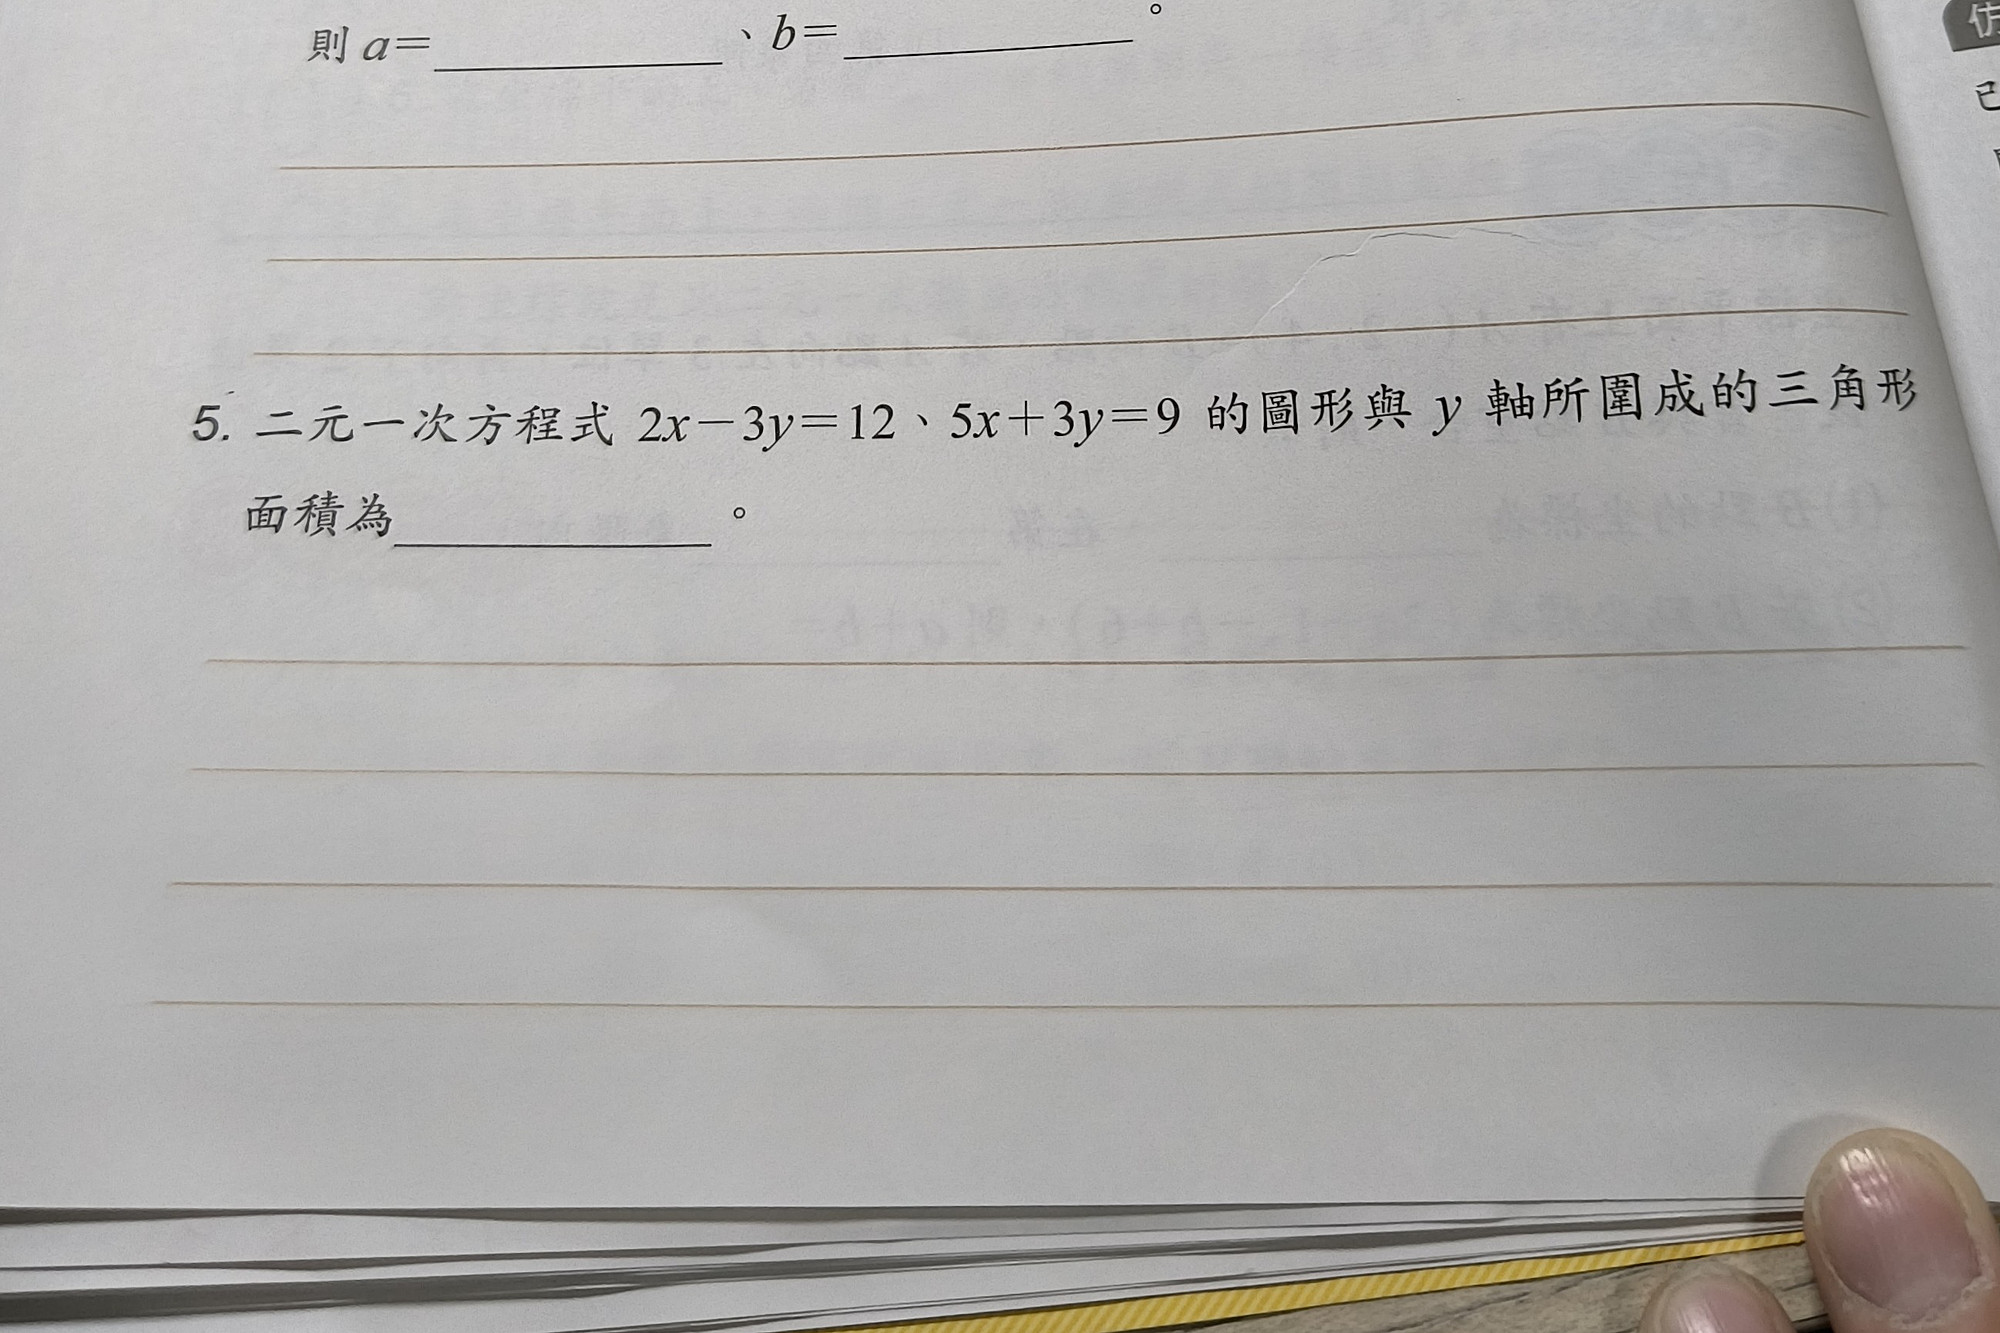 則 a=________、b=________。
5. 二元一次方程式 2x－3y＝12、5x＋3y＝9 的圖形與 y 軸所圍成的三角形
面積為________。
仿
已